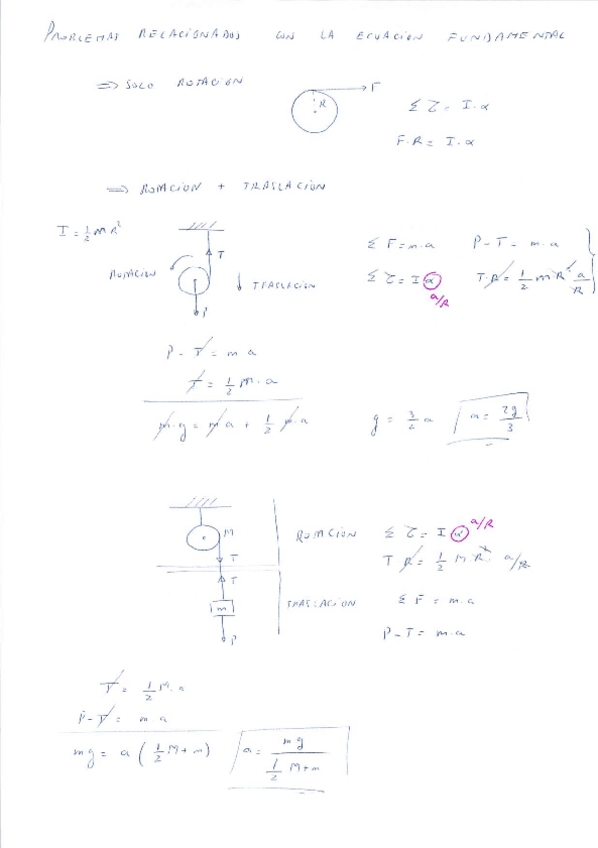 PROBLEMAS RELACIONADOS CON LA ECUACION FUNDAMENTAL
⇒ SOLO ROTACION
F
R
Σ τ = I·α
F·R = I·α
⇒ ROTACION + TRASLACION
I = 1/2 M R²
T
ROTACION
TRASLACION
P
Σ F = m·a P - T = m·a
Σ τ = I α T·R = 1/2 m R² a/R
a/R
P - T = m a
T = 1/2 M·a
m·g = m a + 1/2 m·a g = 3/2 a a = 2g/3
M
T
T
m
P
ROTACION Σ τ = I α a/R
T R = 1/2 M R² a/R
TRASLACION Σ F = m·a
P - T = m·a
T = 1/2 M·a
P - T = m a
mg = a ( 1/2 M + m ) a = mg / 1/2 M + m